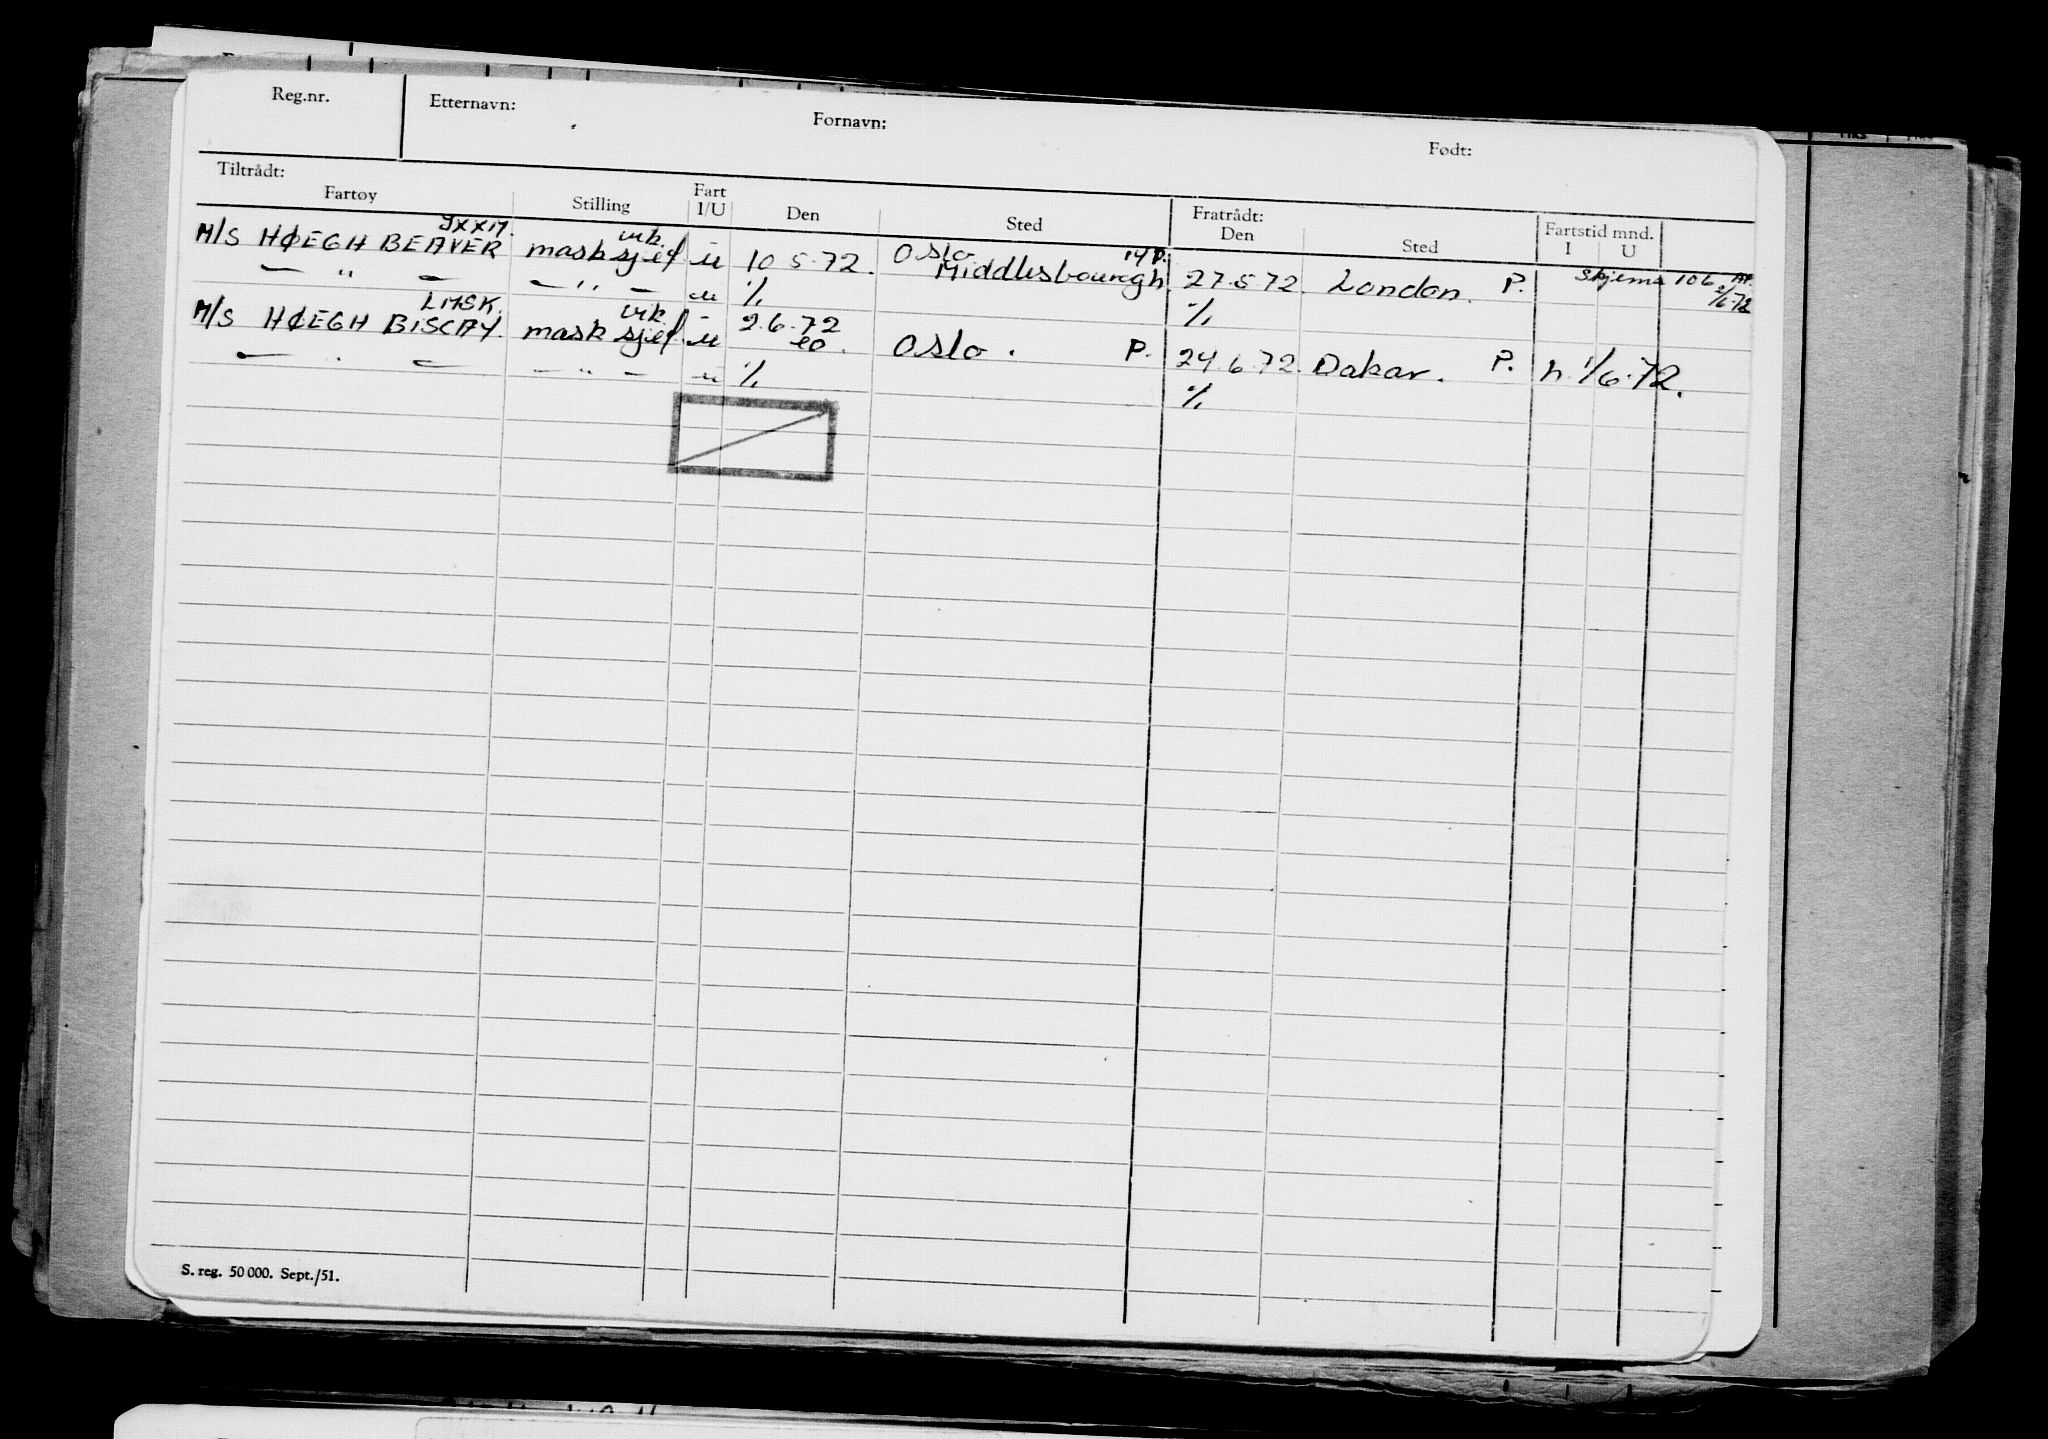 Reg.nr. Etternavn: Fornavn: Født:
Tiltrådt: Fratrådt: Fartstid mnd.
Fartøy Stilling Fart I/U Den Sted Den Sted I U
JXXM. vik.
M/S HØEGH BEAVER mask sjef u 10.5.72. Oslo 14 P.
— " — — " — u % Middlesbourogh. 27.5.72. London. P. Skjema 106 2/6-72
LMSK. vik. %
M/S HØEGH BISCAY. mask sjef. u 2.6.72 eo. Oslo. P. 24.6.72. Dakar. P. n. 1/6.72.
— " — — " — u % %
S. reg. 50 000. Sept./51.